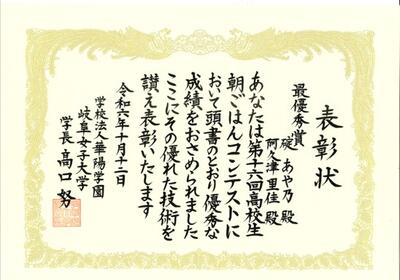 表彰状
最優秀賞
碇 あや乃 殿
阿久津里佳 殿
あなたは第十六回高校生
朝ごはんコンテストに
おいて頭書のとおり優秀な
成績をおさめられました
ここにその優れた技術を
讃え表彰いたします
令和六年十月十二日
学校法人華陽学園
岐阜女子大学
学長 高口 努